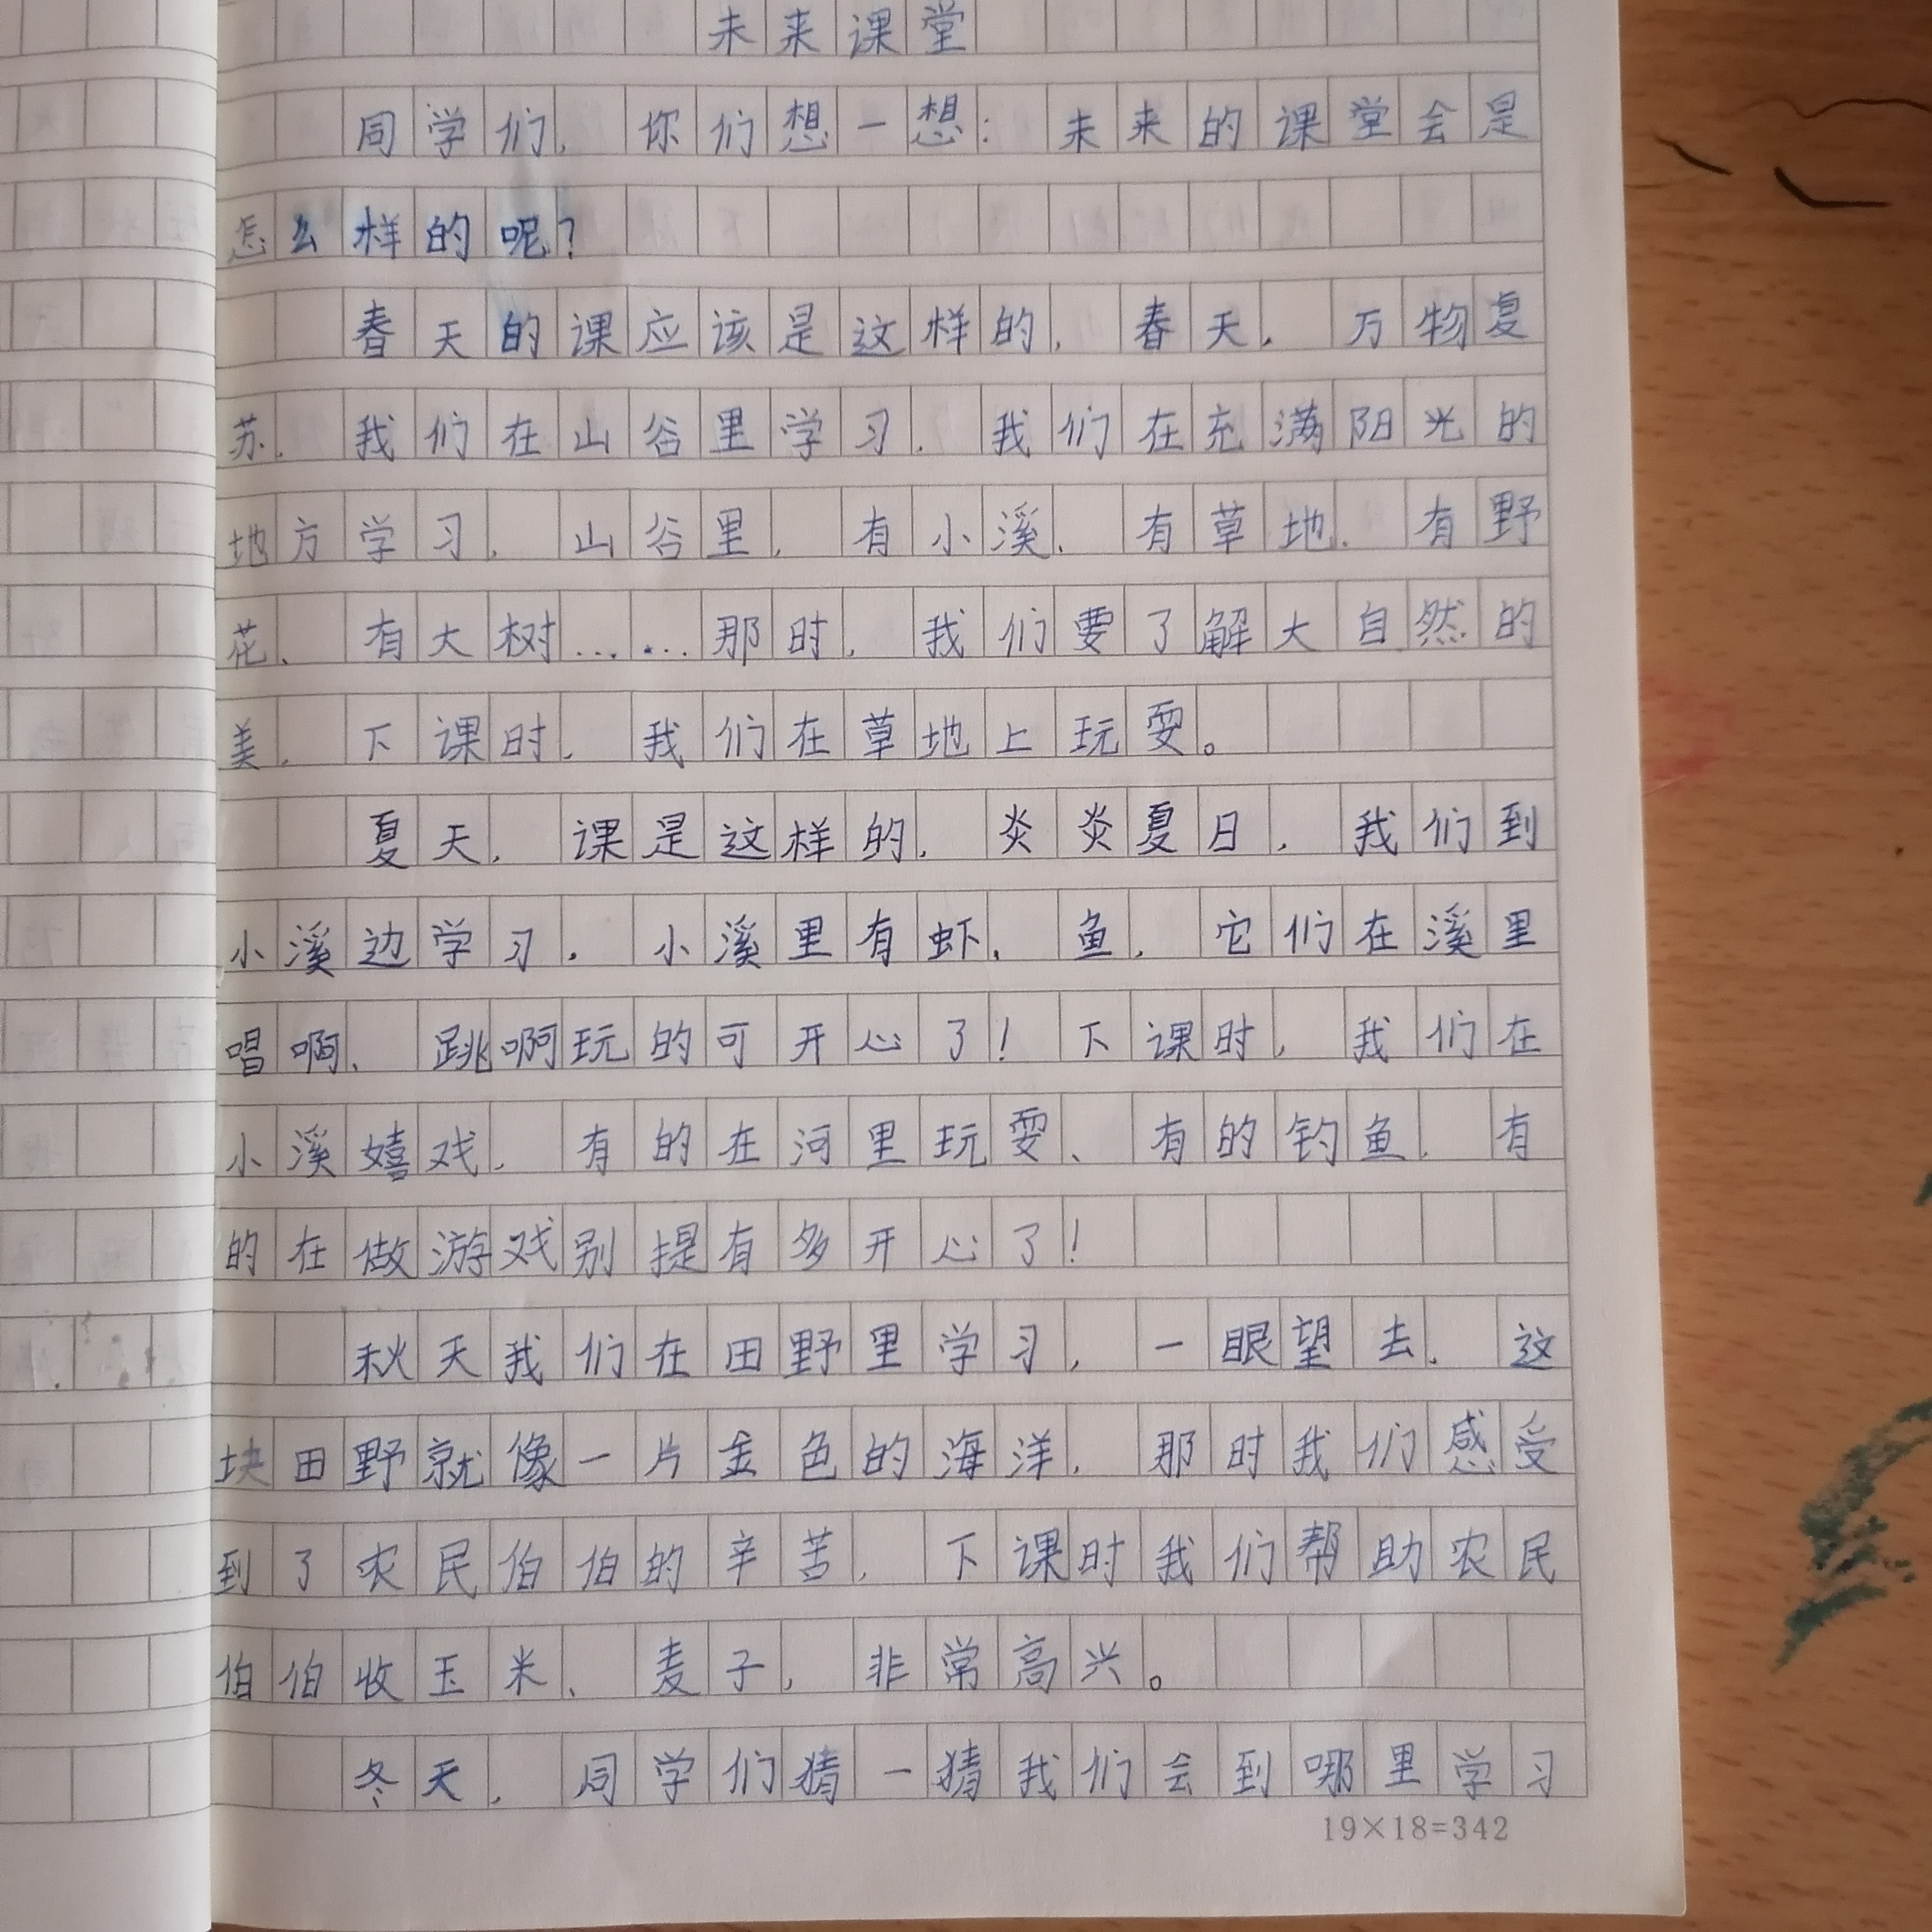 未来课堂
同学们，你们想一想：未来的课堂会是
怎么样的呢？
春天的课应该是这样的，春天，万物复
苏，我们在山谷里学习，我们在充满阳光的
地方学习，山谷里，有小溪、有草地、有野
花、有大树……那时，我们要了解大自然的
美，下课时，我们在草地上玩耍。
夏天，课是这样的，炎炎夏日，我们到
小溪边学习，小溪里有虾、鱼，它们在溪里
唱啊、跳啊玩的可开心了！下课时，我们在
小溪嬉戏，有的在河里玩耍、有的钓鱼、有
的在做游戏别提有多开心了！
秋天我们在田野里学习，一眼望去，这
块田野就像一片金色的海洋，那时我们感受
到了农民伯伯的辛苦，下课时我们帮助农民
伯伯收玉米、麦子，非常高兴。
冬天，同学们猜一猜我们会到哪里学习
19×18=342